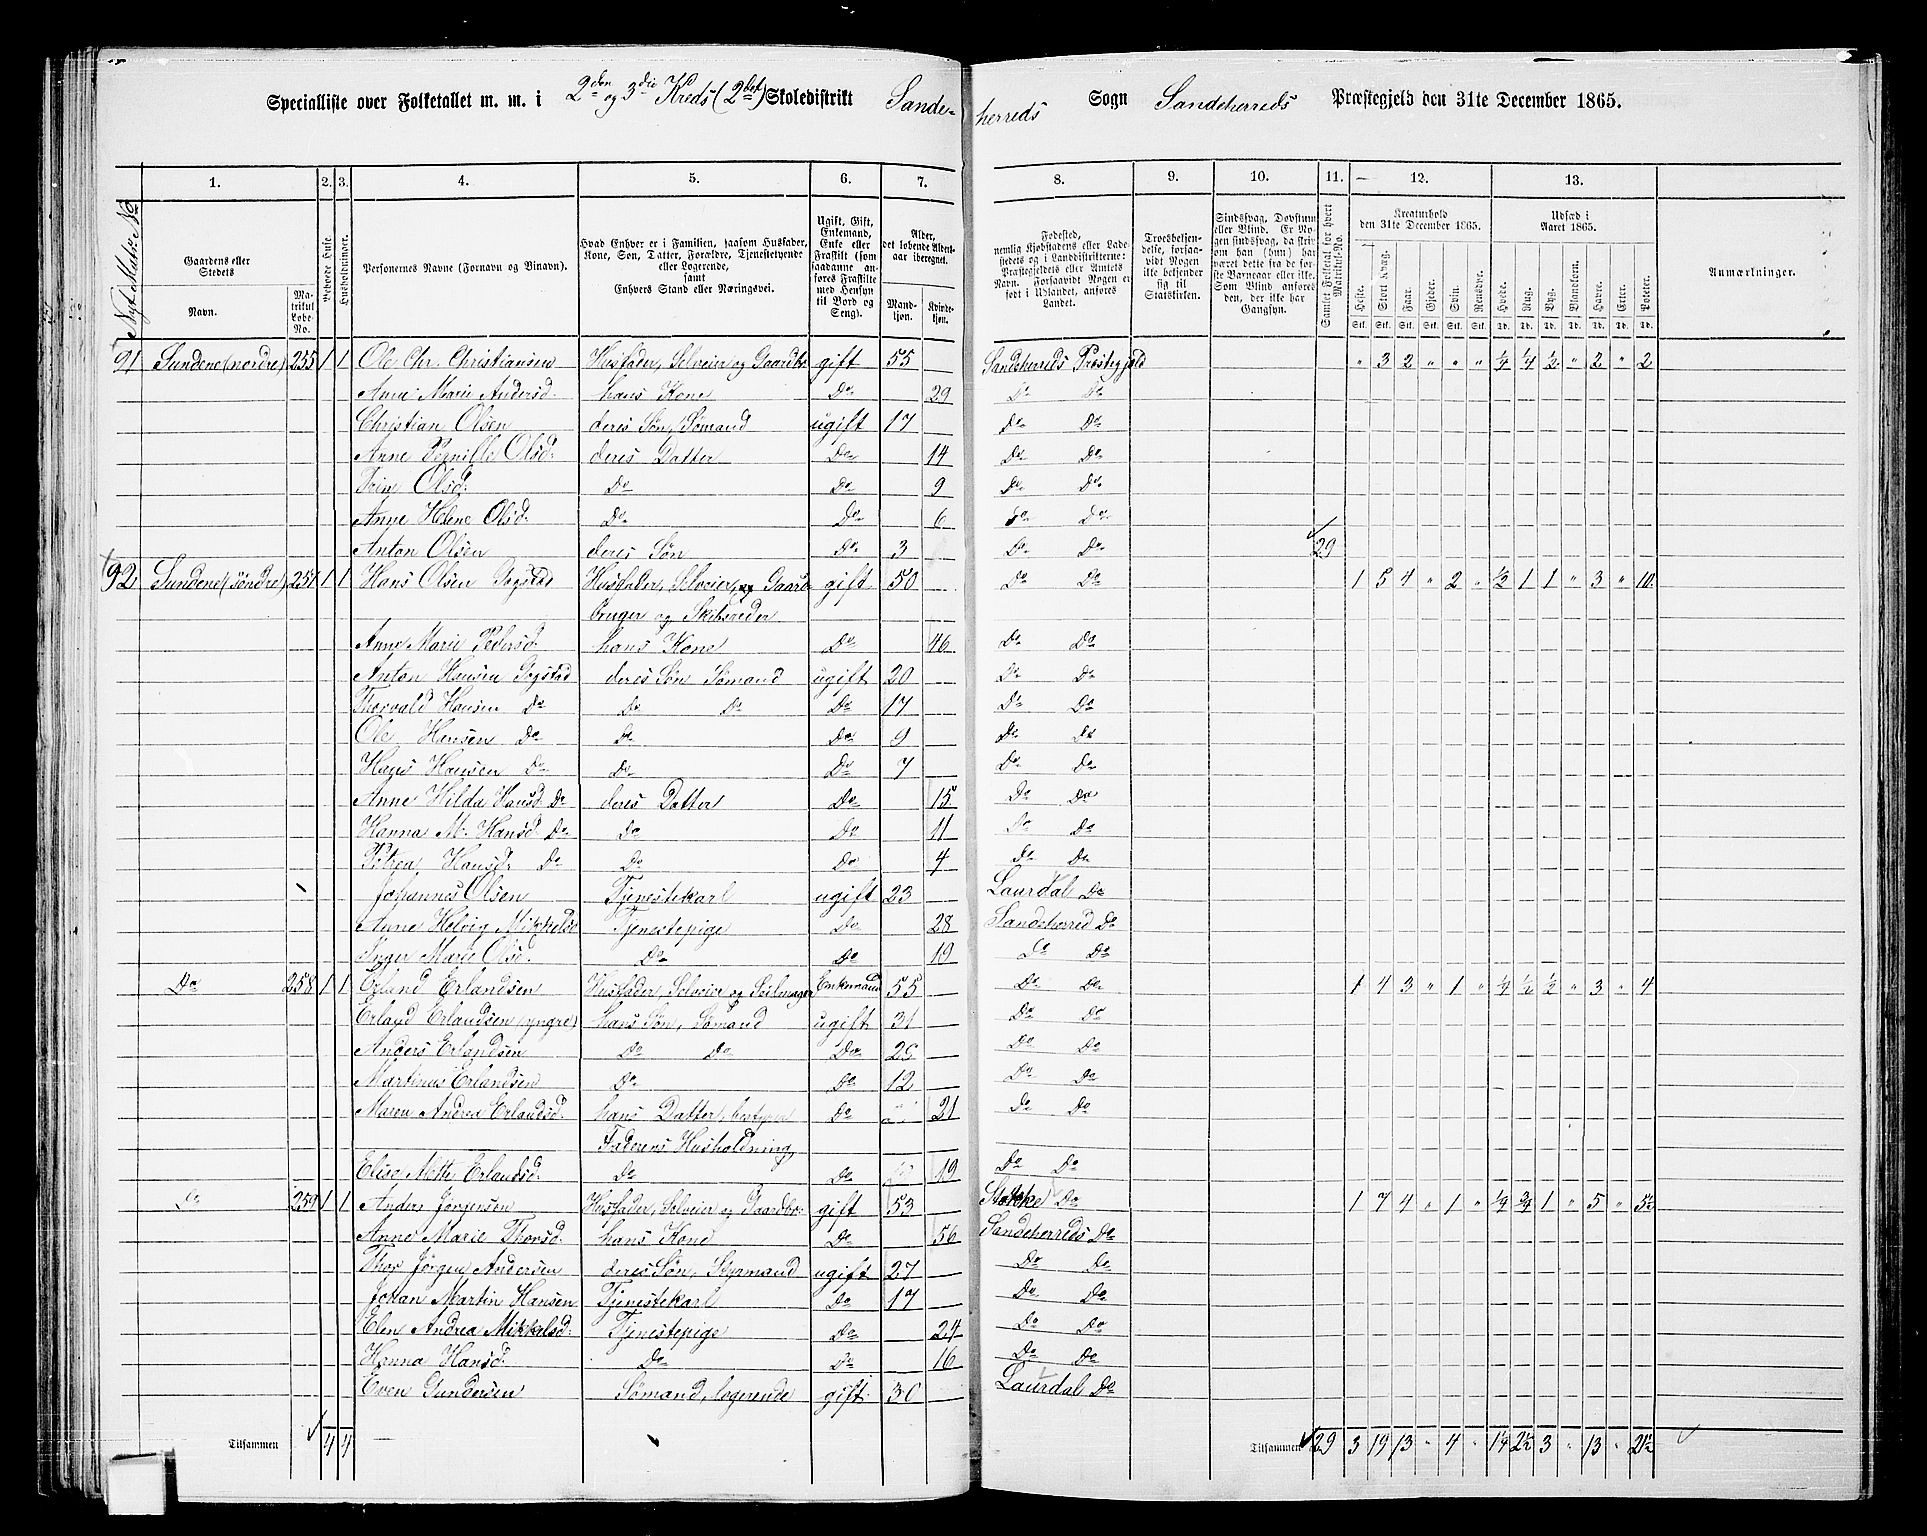 Specialliste over Folketallet m. m. i 2den og 3die Kreds (2det) Skoledistrikt Sande-herreds Sogn Sandeherreds Præstegjeld den 31te December 1865.
Nyt Matr. No
1. 2. 3. 4. 5. 6. 7. 8. 9. 10. 11. 12. 13.
Gaardens eller Stedets
Navn.
Matrikul Løbe-No.
Beboede Huse
Husholdninger.
Personernes Navne (Fornavn og Vinavn).
Hvad Enhver er i Familien, saasom Husfader, Kone, Søn, Datter, Forældre, Tjenestetyende eller Logerende, samt Enhvers Stand eller Næringsvei.
Ugift, Gift, Enkemand, Enke eller Fraskilt (som saadanne anføres Fraskilte med Hensyn til Bord og Seng).
Alder, det løbende Aldersaar iberegnet.
Mandkjøn. Kvindekjøn.
Fødested, nemlig Kjøbstadens eller Ladestedets og i Landdistrikterne: Præstegjeldets eller Amtets Navn. Forsaavidt Nogen er født i Udlandet, anføres Landet.
Troesbekjendelse, forsaavidt Nogen ikke bekjender sig til Statskirken.
Sindssvag, Døvstum eller Blind. Er Nogen sindssvag, da skrives om han (hun) har været dette fra de første Barneaar eller ikke. Som Blind anføres den, der ikke har Gangsyn.
Samlet Folketal for hvert Matrikul-No.
Kreaturhold den 31te December 1865.
Udsæd i Aaret 1865.
Heste. Stort Kvæg. Faar. Gjeder. Svin. Rensdyr. Hvede. Rug. Byg. Blandkorn. Havre. Erter. Poteter.
Stk. Stk. Stk. Stk. Stk. Stk. Td. Td. Td. Td. Td. Td. Td.
Anmærkninger.
91 Sundene (nordre) 255 1 1 Ole Chr. Christiansen Husfader, Selveier og Gaardbr. gift 55 Sandeherreds Præstegjeld " 3 2 " " " 1/4 1/4 1/2 " 2 " 2
Anne Marie Andersd. hans Kone Do 29 Do Do
Christian Olsen deres Søn, Sømand ugift 17 Do Do
Anne Pernille Olsd. deres Datter Do 14 Do Do
Trine Olsd. Do Do 9 Do Do
Anne Helene Olsd. Do Do 6 Do Do
Anton Olsen deres Søn Do 3 Do Do 29
92 Sundene (søndre) 257 1 1 Hans Olsen Gogstad Husfader, Selveier, og Gaard- gift 50 Do Do 1 5 4 " 2 " 1/2 1 1 " 3 " 10
bruger og Skibsreder
Anne Marie Pedersd. hans Kone Do 46 Do Do
Anton Hansen Gogstad deres Søn Sømand ugift 20 Do Do
Thorvald Hansen Do Do Do Do 17 Do Do
Ole Hansen Do Do Do 9 Do Do
Hans Hansen Do Do Do 7 Do Do
Anne Hilda Hansd. Do deres Datter Do 15 Do Do
Hanna M. Hansd. Do Do Do 11 Do Do
Petrea Hansd. Do Do Do 4 Do Do
Johannes Olsen Tjenestekarl ugift 23 Laurdal Do
Anne Helvig Mikkelsd. Tjenestepige Do 28 Sandeherred Do
Inger Marie Olsd. Do Do 19 Do Do
Do 258 1 1 Erland Erlandsen Husfader, Selveier og Seilmager Enkemand 55 Do Do 1 4 3 " 1 " 1/4 1/2 1/2 " 3 " 4
Erland Erlandsen (yngre) hans Søn, Sømand ugift 31 Do Do
Anders Erlandsen Do Do Do 26 Do Do
Martinus Erlandsen Do Do 12 Do Do
Maren Andrea Erlandsd. hans Datter, bestyrer Do 21 Do Do
Faderens Husholdning,
Elise Mette Erlandsd. Do Do 19 Do Do
Do 259 1 1 Anders Jørgensen Husfader, Selveier og Gaardbr. gift 53 Stokke Do 1 7 4 " 1 " 1/4 3/4 1 " 5 " 5 1/2
Anne Marie Thorsd. hans Kone Do 56 Sandeherreds Do
Thor Jørgen Andersen deres Søn, Styrmand ugift 27 Do Do
Johan Martin Hansen Tjenestekarl Do 17 Do Do
Elen Andrea Mikkelsd. Tjenestepige Do 24 Do Do
Hanna Hansd. Do Do 16 Do Do
Even Gundersen Sømand, logerende gift 30 Laurdal Do
Tilsammen 4 4 Tilsammen 29 3 19 13 " 4 " 1 1/4 2 1/2 3 " 13 " 21 1/2